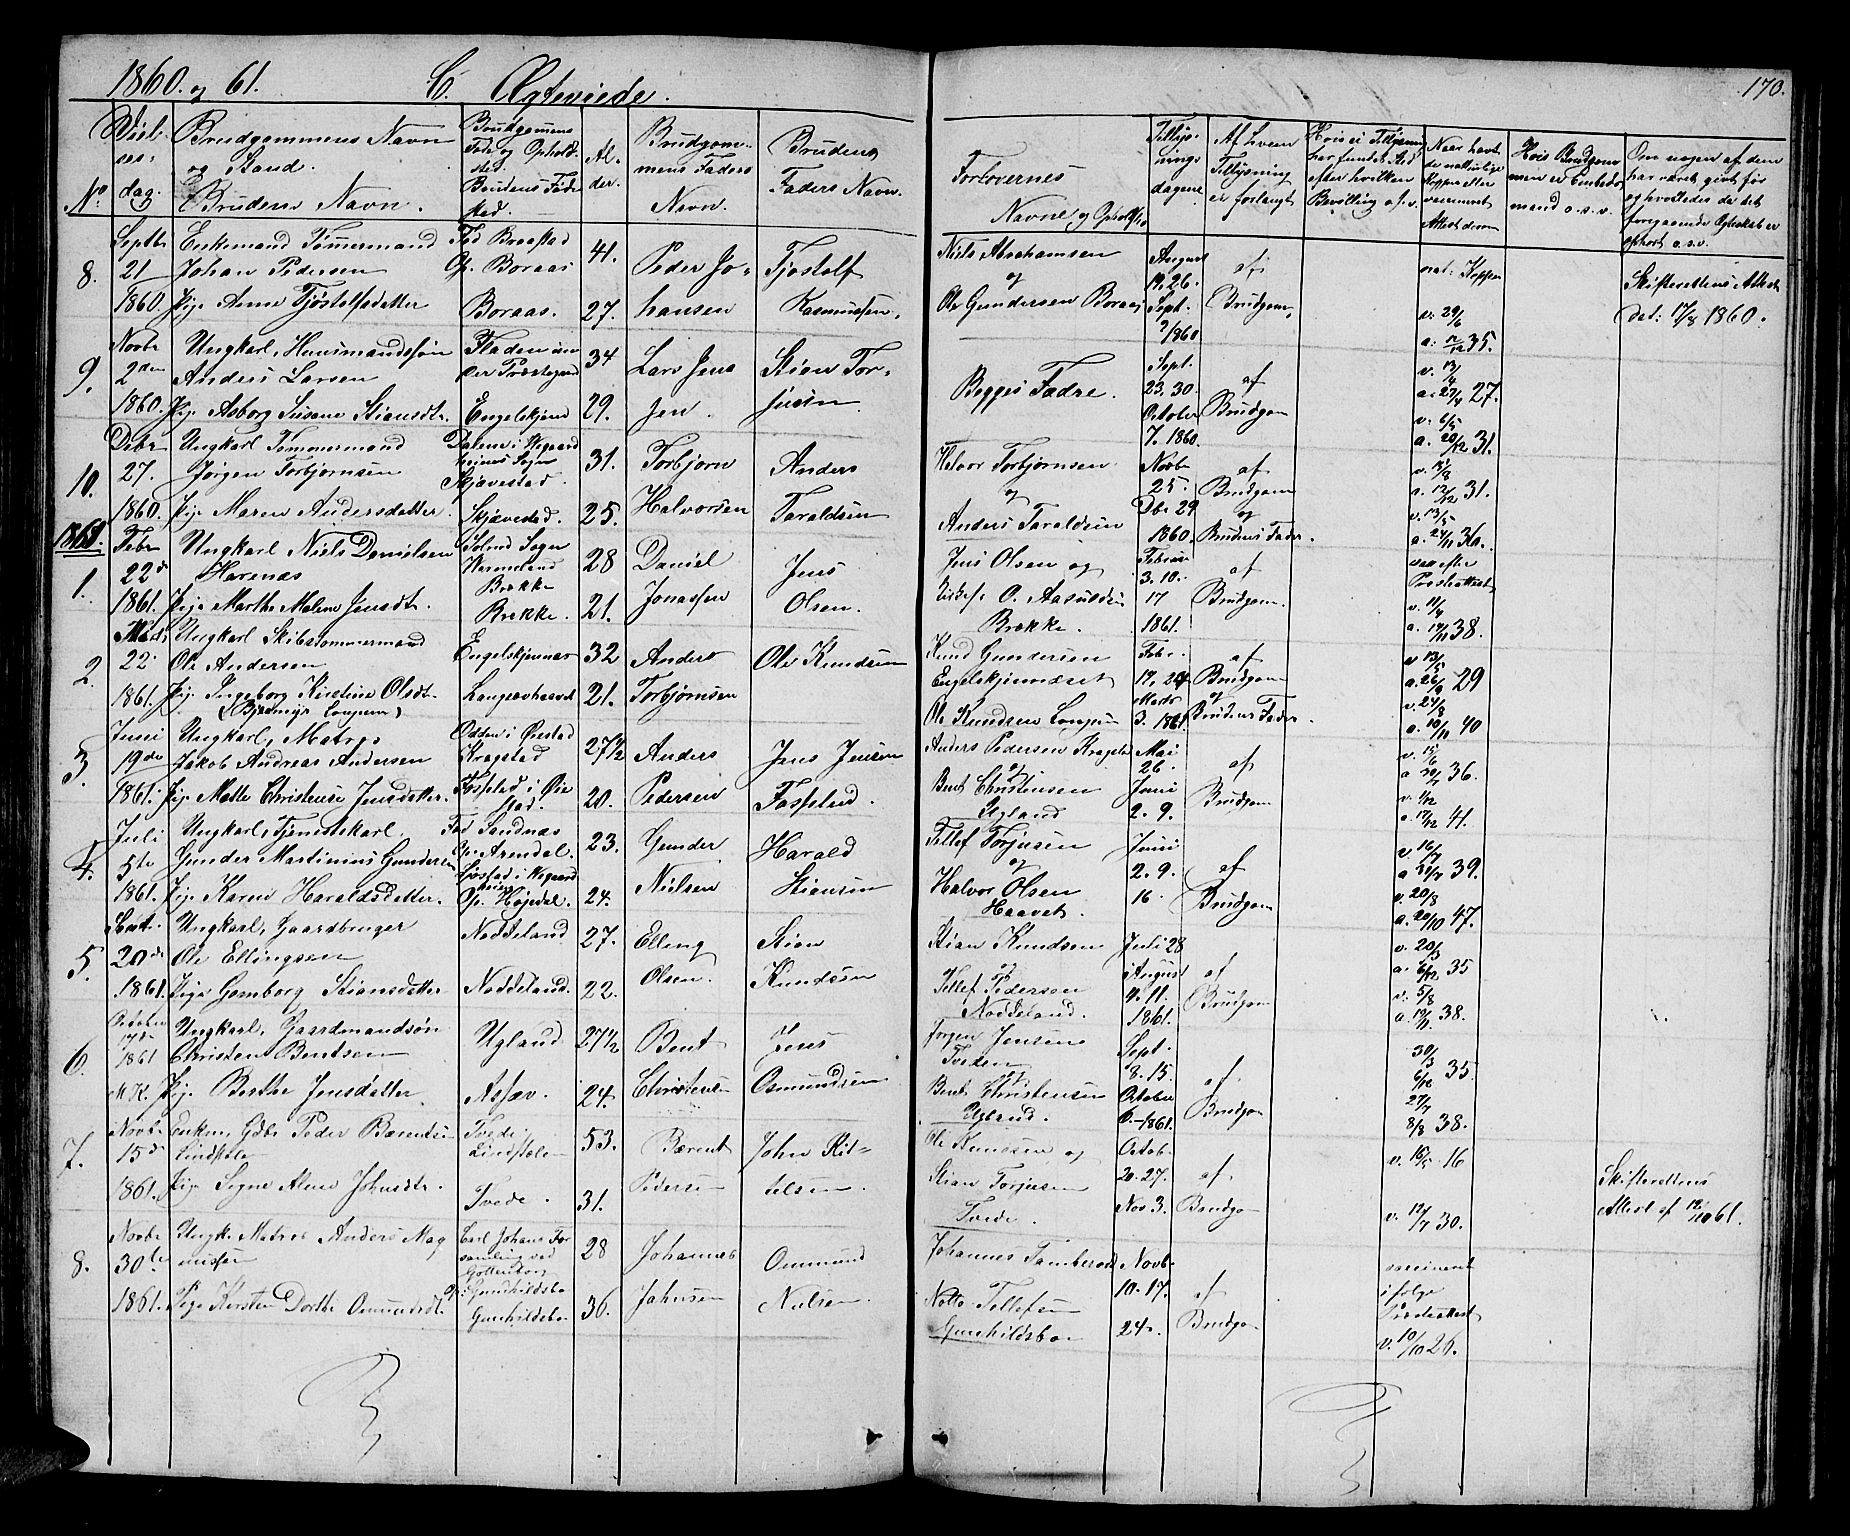 1860. og 61. C. Ægteviede.
170.
No
Vielses-dag
Brudgommens Navn og Stand.
Brudens Navn.
Brudgommens Føde og Opholdsted.
Brudens Fødested.
Alder.
Brudgommens Faders Navn.
Brudens Faders Navn.
Forlovernes Navne og Opholdssted
Tillysningsdagene.
Af hvem Tillysning er forlangt
Hvis ei Tillysning har fundet Sted efter hvilken Bevilling o.s.v.
Naar havt de naturlige Kopper eller vaccineret
Attest derom
Hvis Brudgommen er Embedsmand o.s.v.
Om nogen af dem har været givt før og hvorledes da det foregaaende Ægteskab er ophørt o.s.v.
8. Septbr 21 1860.
Enkemand Tømmermand
Johan Pedersen
Pige Anne Tjøstolfsdatter
Fød Braastad
Op. Boraas
Boraas.
41.
27.
Peder Johansen
Tjostolf Rasmussen.
Niels Abrahamsen
og
Ole Gundersen Boraas
August
19, 26.
Sept.
2/1860
af
Brudgom.
nat: Kopper
v. 29/6
a. 12/12 35.
Skifterettens Attest
dat: 17/8 1860.
9. Novbr 2den 1860.
Ungkarl, Huusmandssøn
Anders Larsen
Pige Asborg Susane Stiansdtr.
Fladen under Præstegaard
Engelskjøn
34
29.
Lars Jensen.
Stian Torjusen
Begges Fædre.
Sept.
23, 30.
October
7. 1860.
af
Brudgom
v. 13/4
a. 27/4 27.
v. 6/5
a. 20/12 31.
10. Debr 27. 1860.
Ungkarl Tømmermand
Jørgen Torbjørnsen
Pige Maren Andersdatter.
Skjævestad.
Skjævestad.
31.
25.
Torbjørn Halvorsen
Anders Taraldsen
Halvor Torbjørnsen
og
Anders Taraldsen
Novbr
25.
Dbr 29
1860.
af
Brudgom
og
Brudens Fader.
a. 12/12 31.
v. 13/5
a. 24/11 36.
1861.
1. Febr 22d 1861.
Ungkarl Niels Danielsen
Harenæs
Pige Marthe Malene Jensdtr.
Brække
Brække.
28
21.
Daniel Jonassen
Jens Olsen.
Jens Olsen og
O. Aasulsen
Brække.
Februar
3. 10.
17
1861.
af
Brudgom.
vacc efter
Præsteattest
v. 11/4
a. 19/11 38.
2. Marts 22 1861.
Ungkarl Skibstømmermand
Ole Andersen
Pige Ingeborg Kirstine Olsdtr.
Engelskjønnæs
32
21.
Anders Torbjørnsen
Ole Knudsen
Knud Gundersen
Engelskjønnæset
Ole Knudsen
Febr.
17, 24
Marts
3. 1861.
af
Brudgom
og
Brudens Fader.
v. 13/5
a. 26/9 29
v. 24/8
a. 10/11 40
3. Juni 19de 1861.
Ungkarl, Matros
Jakob Andreas Andersen
Pige Mette Christense Jensdatter.
Odden i Øiestad
Kragstad
Fosselad i Øiestad.
27 1/2
20.
Anders Pedersen
Jens Jensen
Anders Pedersen Kragstad
og
Bent Christensen
Ugland
Mai
26.
Juni
2. 9.
af
Brudgom
v. 15/6
a 30/7 36.
v. 1/12
a. 17/12 41.
4. Juli 5te 1861.
Ungkarl, Tjenestekarl.
Gunder Martinius Gundersen
Pige Karen Haraldsdatter.
Fød Sandnæs
Op. Arendal.
Op. Højedal.
23.
24.
Gunder Nielsen
Harald Stiansen
Tellef Torjusen
og
Halvor Olsen
Haavet.
Juni
2. 9.
16.
af
Brudgom
v. 16/7
a 21/7 39.
v. 20/8
a. 20/10 47.
5. Sept. 20de 1861.
Ungkarl, Gaardbruger
Ole Ellingsen
Pige Gomborg Stiansdatter
Noddeland
Noddeland.
27.
22.
Elling Olsen.
Stian Knudsen
Stian Knudsen
og
Tellef Pedersen
Noddeland.
Juli 28
August
4. 11.
1861.
af
Brudgom
v. 20/3
a. 6/12 35
v. 5/8
a. 19/11 38.
6. October 1861
Ungkarl, Gaardmandssøn
Christen Bentsen
Pige Berthe Jensdatter.
Ugland
Assæv.
27 1/2
24.
Bent Christensen
Jens Osmundsen
Jørgen Jensen
Tveden
og
Bent Christensen
Ugland.
Sept.
8. 15.
October
6. 1861.
af
Brudgom
30/3
6/12 35.
27/7
8/8 38.
7. Novbr 15d 1861.
Enkem. Gdbr Peder Bærentsen
Lindstølen
Pige Signe Alene Johnsdtr.
Tvede.
Lindstølen
Tvede.
53.
31.
Bærent Pedersen
John Kittelsen.
Ole Knudsen og
Stian Torjusen
Tvede.
Octob.
20. 27.
Nov. 3.
af
Brudgom
v. 16/5 16
v. 12/7 30.
Skifterettens
Attest af 12/10 61.
8. Novbr 30te 1861.
Ungk. Matros Anders Magnussen
Pige Kirsten Dorthe Osmundsdtr.
Carl Johans Forsamling ved Gøtteborg
Op: Gunhildsbo
Gunhildsbo
28
36.
Johannes Johnsen
Osmund Nielsen
Johannes
Notto Tellefsen
Gunhildsbo
Novbr
10. 17.
24.
af
Brudgom
vaccineret
i følge
Præsteattest
v. 10/10 26.